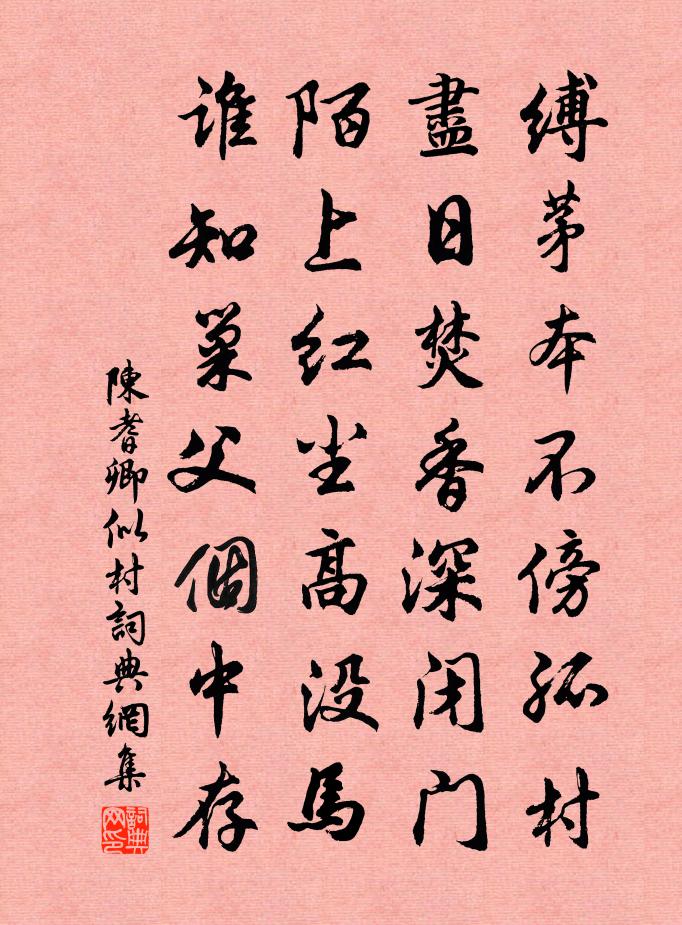 縛茅本不傍孤村
盡日焚香深闭门
陌上红尘高没馬
谁知巢父個中存
陳耆卿似村詞典網集
詞典网印